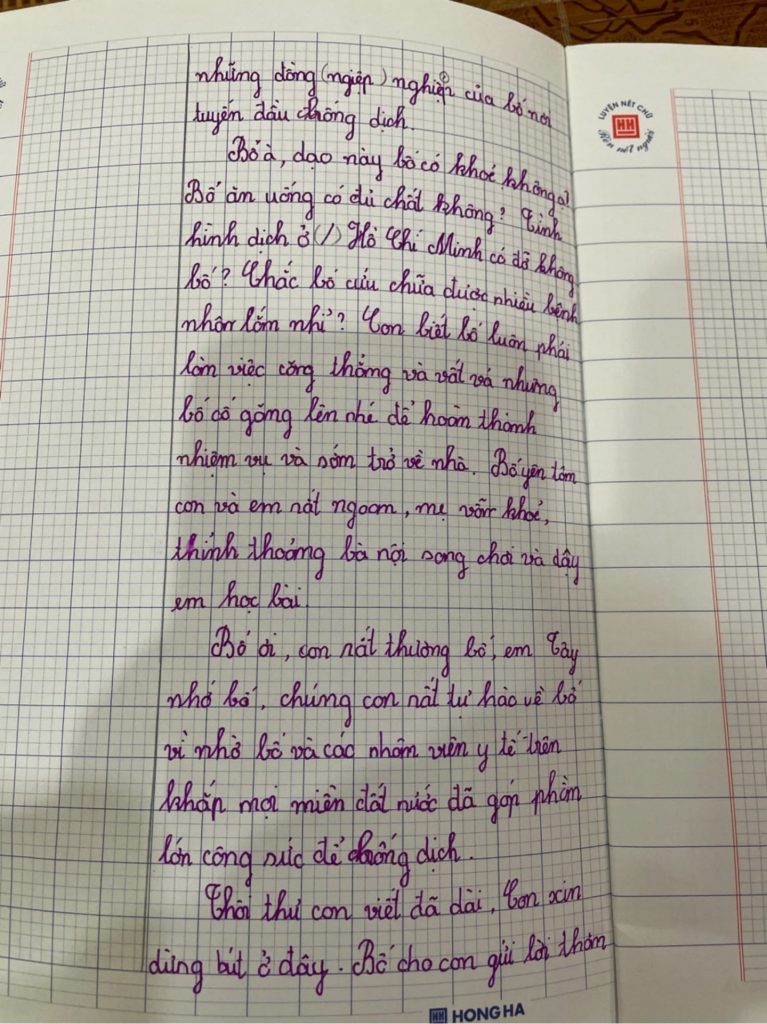 những đồng (ngiệp) nghiệp của bố nơi
tuyến đầu chống dịch.
Bố à, dạo này bố có khoẻ không ạ?
Bố ăn uống có đủ chất không? Tình
hình dịch ở (/) Hồ Chí Minh có đỡ không
bố? Chắc bố cứu chữa được nhiều bệnh
nhân lắm nhỉ? Con biết bố luôn phải
làm việc căng thẳng và vất vả nhưng
bố cố gắng lên nhé để hoàn thành
nhiệm vụ và sớm trở về nhà. Bố yên tâm
con và em rất ngoan, mẹ vẫn khoẻ,
thỉnh thoảng bà nội sang chơi và dậy
em học bài.
Bố ơi, con rất thương bố, em Tây
nhớ bố, chúng con rất tự hào về bố
vì nhờ bố và các nhân viên y tế trên
khắp mọi miền đất nước đã góp phần
lớn công sức để chống dịch.
Thôi thư con viết đã dài, Con xin
dừng bút ở đây. Bố cho con gửi lời thăm
LUYỆN NÉT CHỮ
HH
Rèn nết người
HH HONG HA